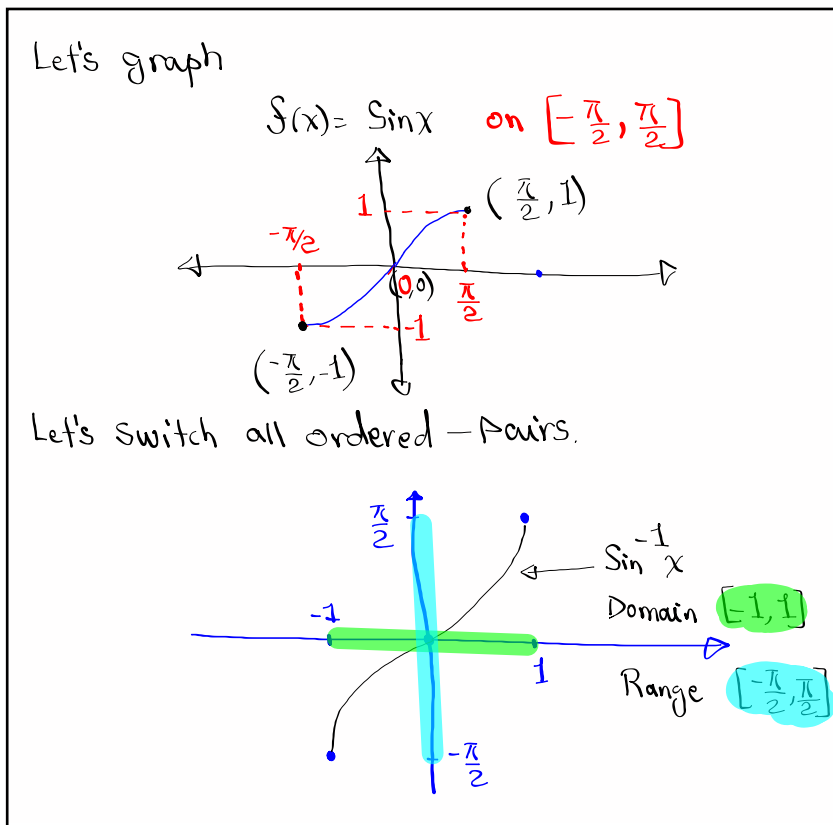 Let's graph
f(x)= Sinx on [-π/2, π/2]
1
(π/2, 1)
-π/2
(0,0)
π/2
-1
(-π/2, -1)
Let's switch all ordered-Pairs.
π/2
Sin⁻¹x
-1
Domain [-1, 1]
1
Range [-π/2, π/2]
-π/2